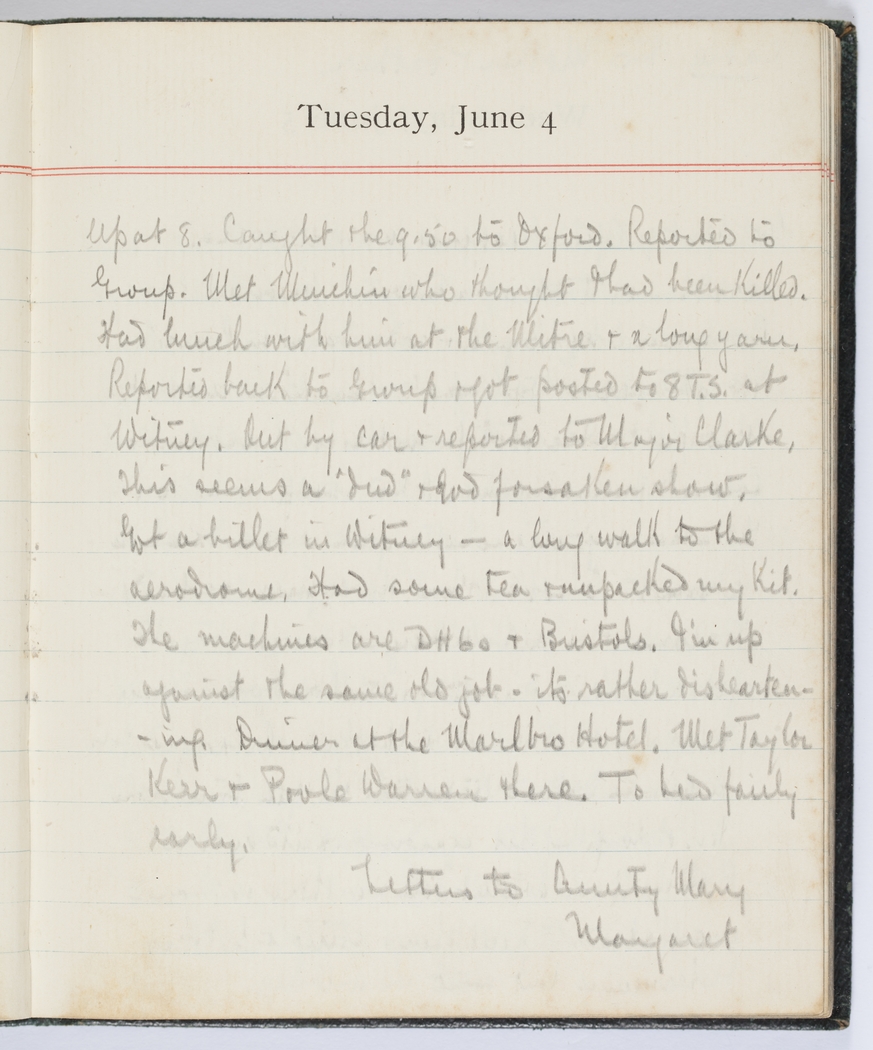 Tuesday, June 4
Up at 8. Caught the 9.50 to Oxford. Reported to
Group. Met Minchin who thought I had been killed.
Had lunch with him at the Mitre & a long yarn.
Reported back to Group & got posted to 8 T.S. at
Witney. Out by car & reported to Major Clarke,
This seems a "dud" & God forsaken show.
Got a billet in Witney — a long walk to the
aerodrome. Had some tea & unpacked my kit.
The machines are DH6s & Bristols. I'm up
against the same old job - its rather dishearten-
-ing. Dinner at the Marlbro Hotel. Met Taylor
Kerr & Poole Warren there. To bed fairly
early.
Letters to Aunty Mary
Margaret